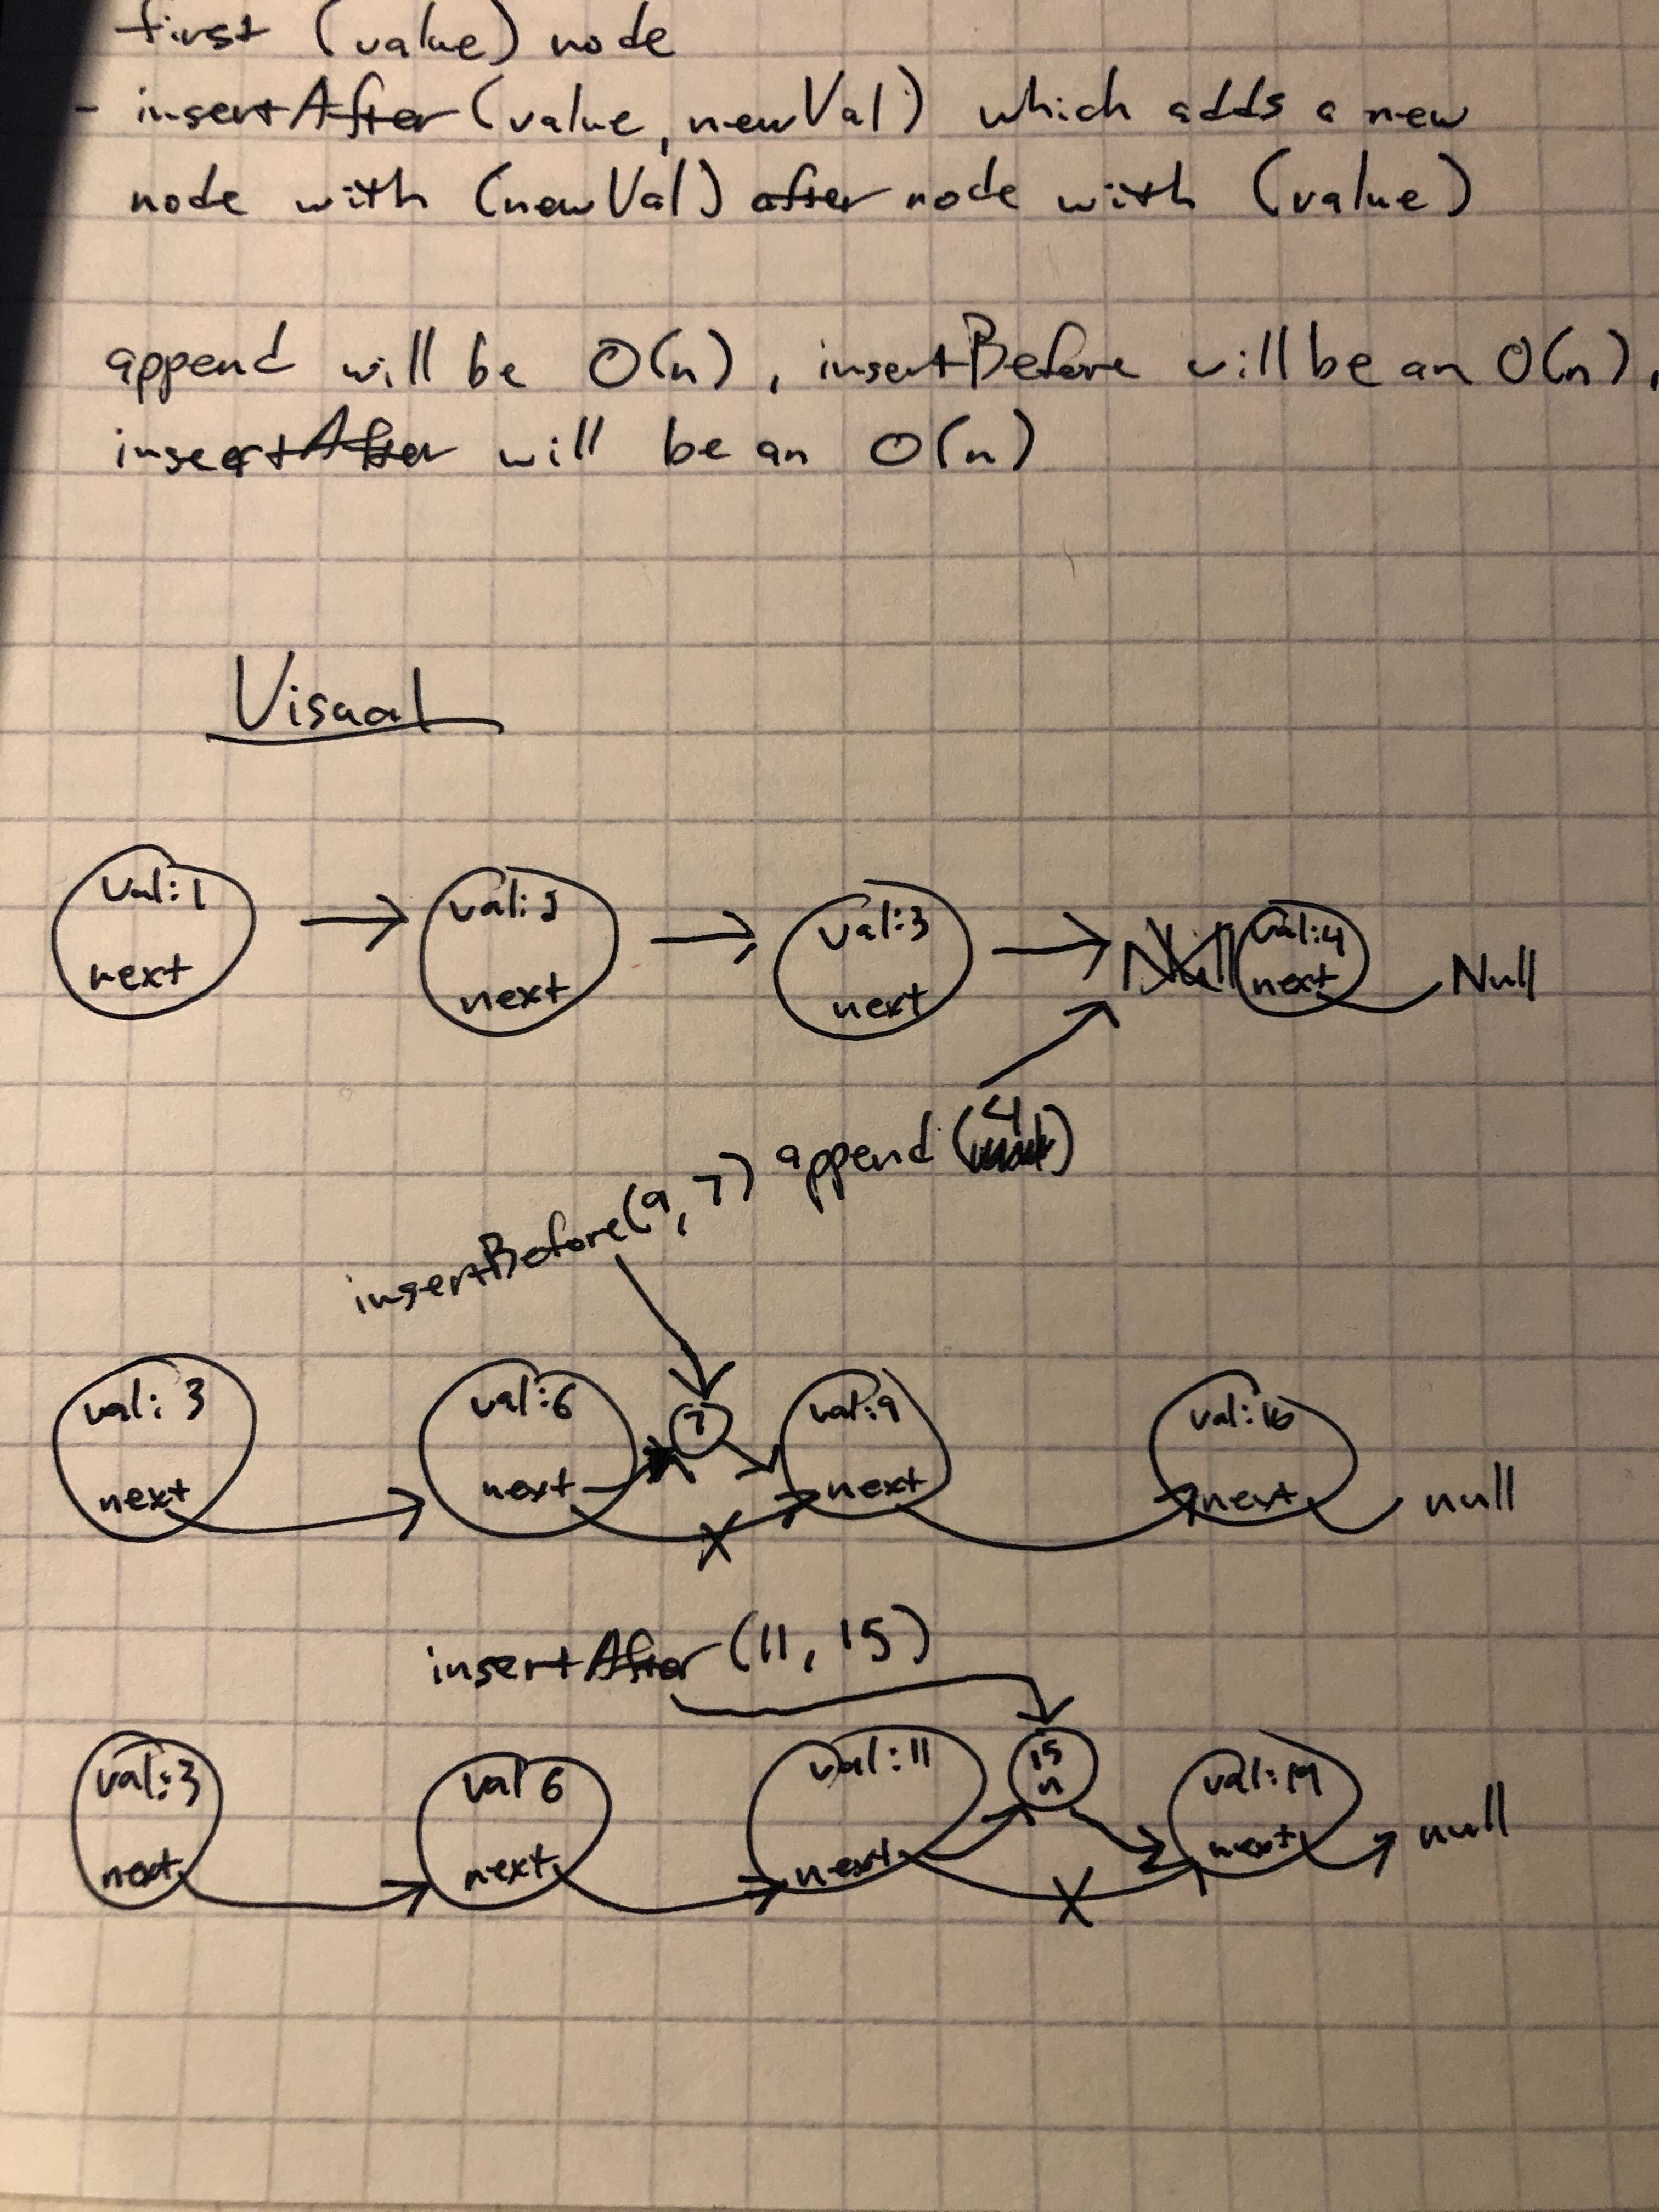 first (value) node
- insertAfter(value, newVal) which adds a new
node with (newVal) after node with (value)
append will be O(n), insertBefore will be an O(n),
insertAfter will be an O(n)
Visual
val:1
next
val:2
next
val:3
next
Null
val:4
next
Null
append(4)
insertBefore(9,7)
val: 3
next
val:6
next
7
val:9
next
next
null
insertAfter(11, 15)
val:3
next
val 6
next
val:11
next
15
n
val:19
next
null